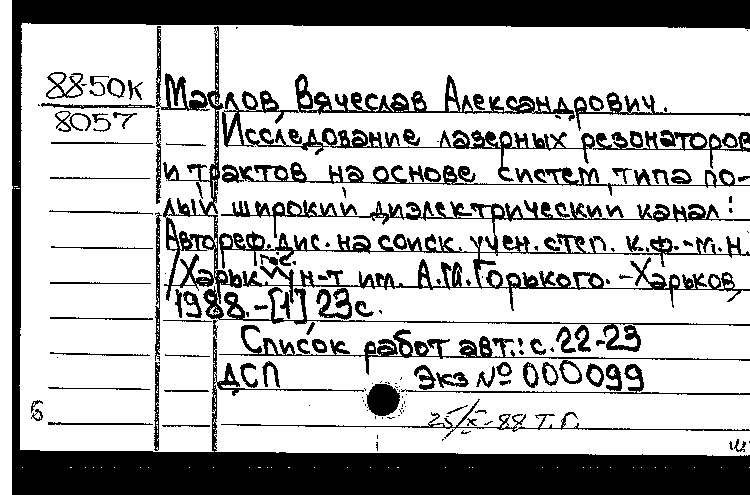 88-50к
8057
Маслов, Вячеслав Александрович.
Исследование лазерных резонаторов
и трактов на основе систем типа по-
лый широкий диэлектрический канал:
Автореф. дис. на соиск. учен. степ. к.ф.-м.н.
/Харьк. гос. ун-т им. А.М.Горького. -Харьков,
1988.-[1] 23с.
Список работ авт.: с.22-23
ДСП Экз № 000099
Б
25/X-88 Т.Г.